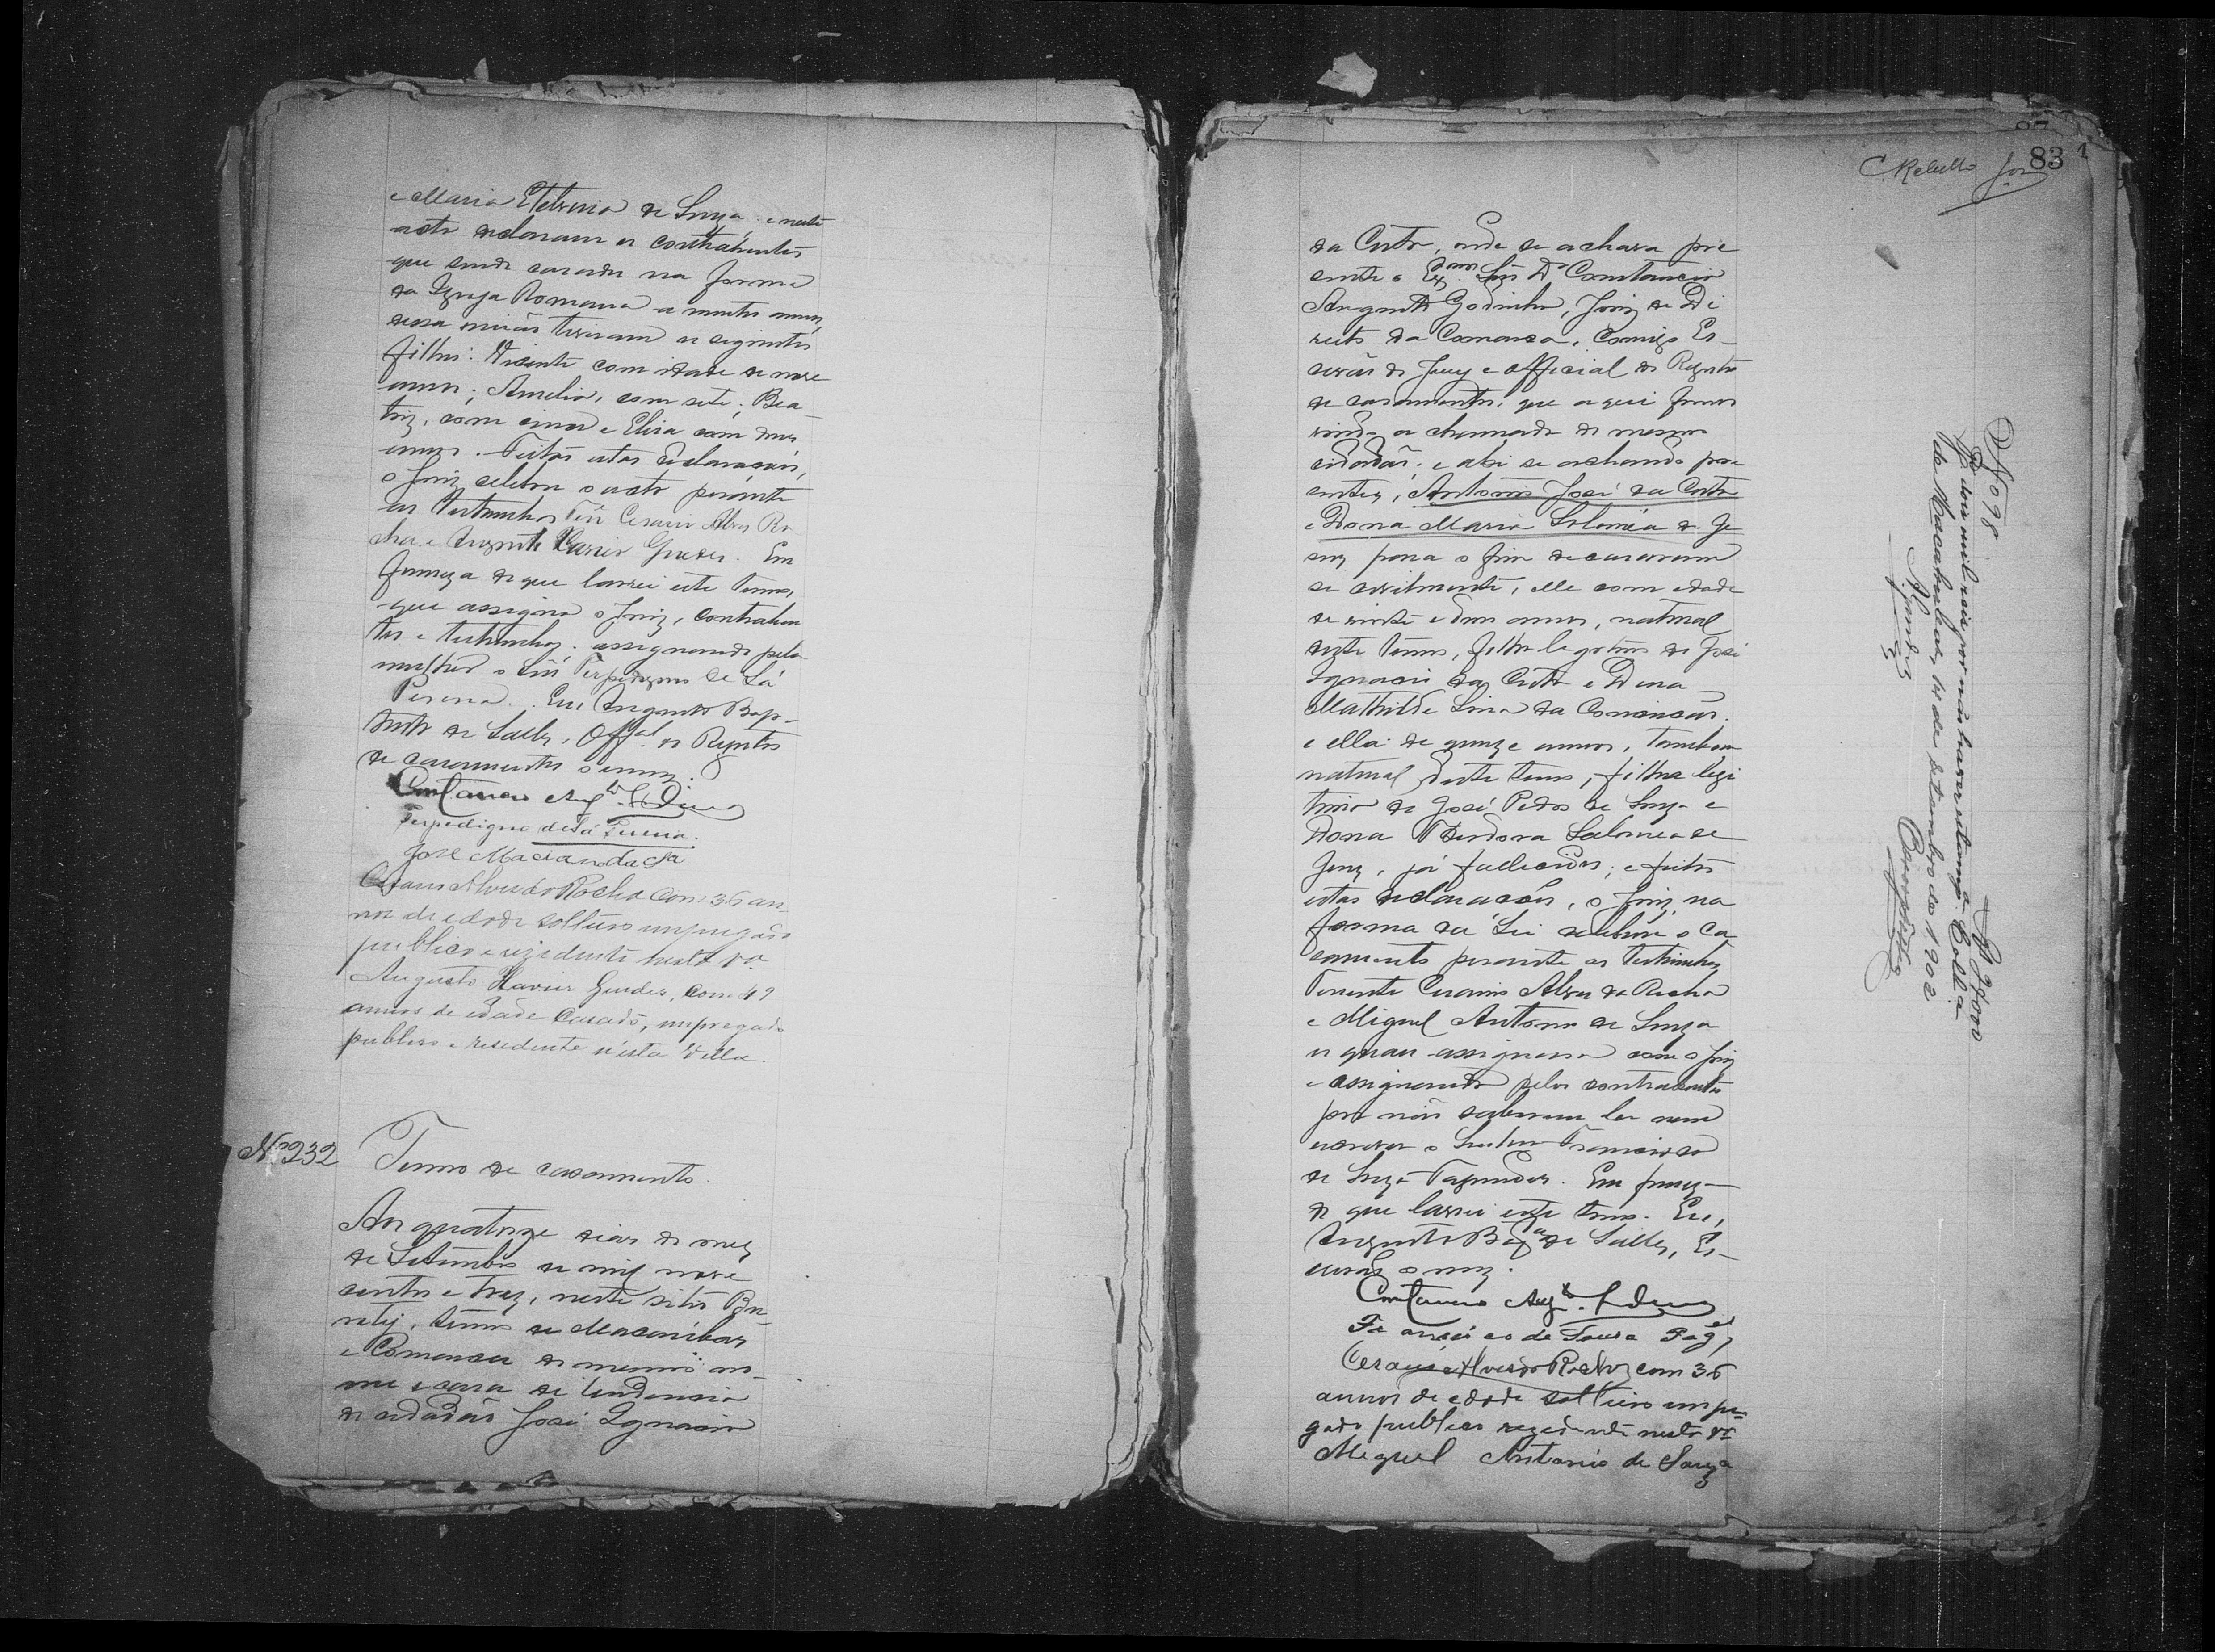 e Maria Etelvina de Souza; e neste
acto declaram os contrahentes
que sendo casados na forma
da Igreja Romana a muitos annos,
dessa união tiveram os seguintes
filhos: Vicente com idade de nove
annos; Amelia, com sete; Bea-
triz, com cinco e Elisa com dous
annos. Feitas estas declarações,
o Juiz celebrou o acto perante
as testemunhas Ten Cesario Alves Ro
cha e Augusto Xavier Guedes. Em
firmeza do que lavrei este termo,
que assigna o Juiz, contrahen
tes e testemunhas; assignando pela
mulher o Snr Terpedigno de Sá
Pereira. Eu Augusto Bap-
tista de Salles, Offal do Registro
de casamentos o escrevi.
Constancio Augto Godinho
Terpedigno de Sá Pereira.
José Maciano da Sa
Cesario Alves da Rocha com 36 an-
nos de edade solteiro empregado
publico e rezidente nesta Va
Augusto Xavier Guedes, com 49
annos de edade Casado, empregado
publico e residente n'esta Villa.
No 232 Termo de casamento.
Aos quatorze dias do mez
de Setembro de mil nove
centos e trez, neste sitio Bu-
rity, termo de Macahubas
e Comarca do mesmo no-
me e casa de residencia
do cidadão José Ignacio
83
C. Rebello Jor
da Costa, onde se achava pre
sente o Exmo Snr Dr Constancio
Augusto Godinho, Juiz de Di
reito da Comarca, comigo Es-
crivão do Jury e official do Registro
de casamentos, que aqui fomos
vindo a chamado do mesmo
cidadão; e ahi se achando pre
sentes, Antonio José da Costa
e Dona Maria Saloméa de Je
sus para o fim de casarem
se civilmente, elle com edade
de vinte e dous annos, natural
deste termo, filho legitimo de José
Ignacio da Costa e Dona
Mathilde Lina da Conceição;
e ella de quinze annos, tambem
natural deste termo, filha legi
tima de José Pedro de Souza e
Dona Theodora Salomea de
Jesus, já fallecidos; e feitas
estas declarações, o Juiz, na
forma da Lei celebrou o ca
samento perante as testemunhas
Tenente Cesario Alves da Rocha
e Miguel Antonio de Souza
os quaes assignam com o Juiz
e assignando pelos contrahentes
por não saberem ler nem
escrever o Senhor Francisco
de Souza Fagundes. Em firmeza
do que lavrei este termo. Eu,
Augusto Bapta de Salles, Es-
crivão o escrevi.
Constancio Augto Godinho
Francisco de Sousa Fages
Cesario Alves da Rocha com 36
annos de edade solteiro empre
gado publico rezidente nesta Va
Miguel Antonio de Souza
No 98 Rs 2$000
Pg dois mil reis por não haver estampa. Colla
de Macahubas, 13 de Setembro de 1902